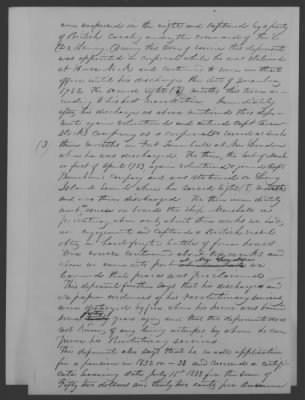 were surprised in the night and captured by a party
of British Cavalry under the command of the
Delancy. During this term of service this deponent
was appointed a Corporal while he was stationed
at Horse Neck and continued to serve in that
office until his discharge the last of January
1782. He served eight (8) months this term ac-
cording to his best recollection. Immediately
after his discharge as above mentioned this depo-
nent again volunteered and entered Capt
Company as a corporal or served as such
three months in Fort Trumbull at New London
when he was discharged. He then, the last of March
or first of April 1783 again volunteered and joined Capt
Company and was stationed on Long
Island Sound where he served eight (8) months
and was then discharged. He then immediately
went on board the ship Marshall a
privateer, when only about three weeks we had
an engagement and captured a British vessel
after a hard fought battle of four hours
Our cruise continued about six weeks and
when we came into port
learned that peace was proclaimed.
(3)
This deponent further says that his discharges and
all papers evidences of his Revolutionary services
were destroyed by fire when his house was burned
some forty years ago; and that this deponent does
not know of any living witness by whom he can
prove his Revolutionary services.
This deponent also says that he made application
for a pension in 1832 or -33 and received a certifi-
cate bearing date July 15th 1833 for the sum of
Fifty two dollars and thirty two cents per annum